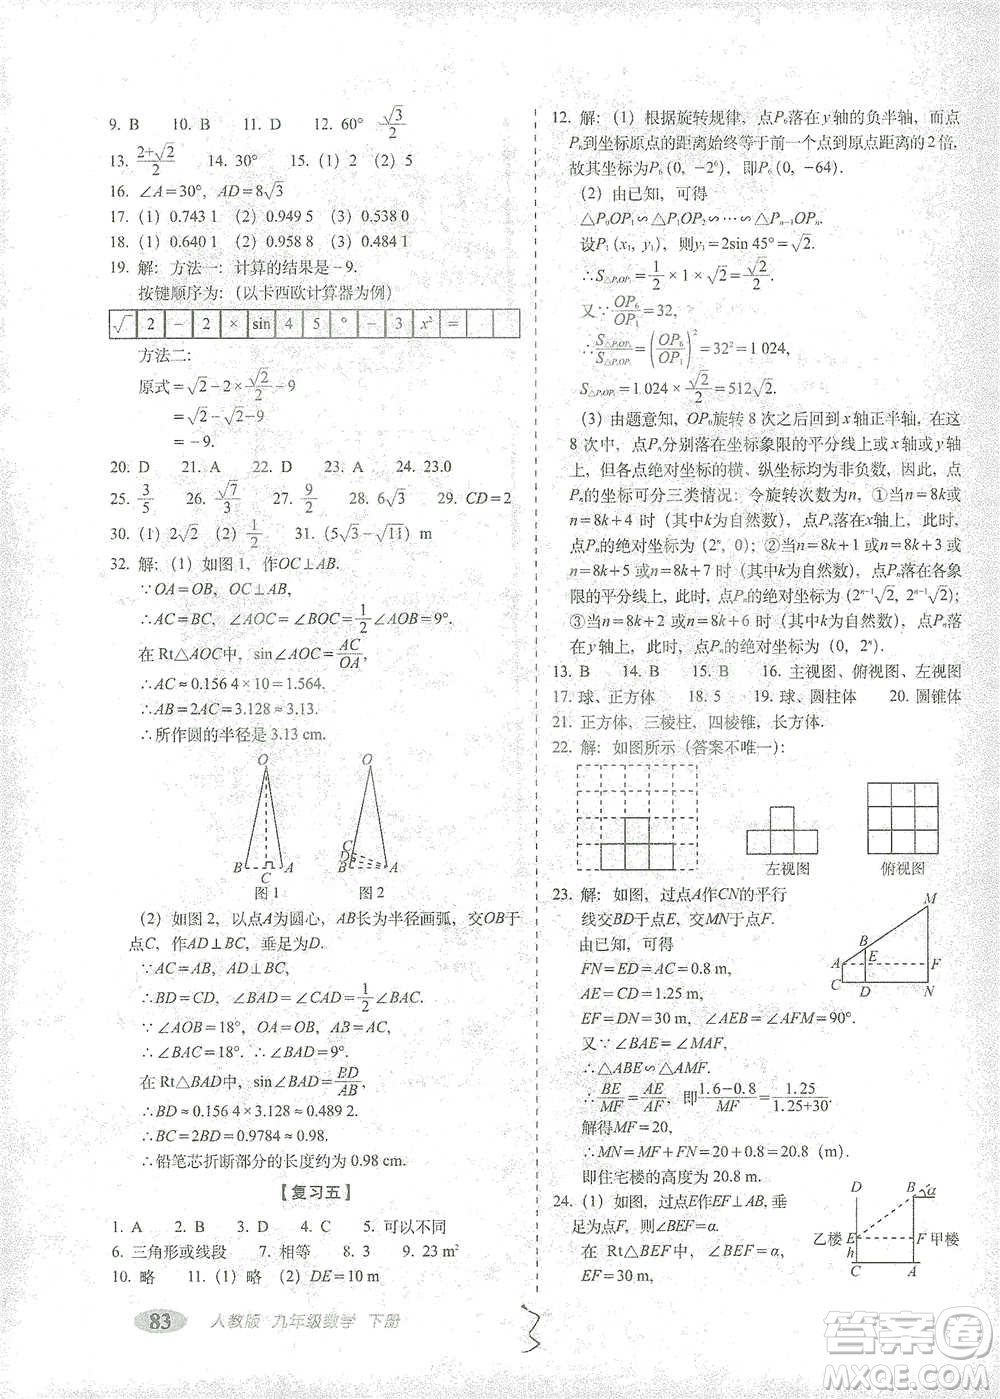 9. B　10. B　11. D　12. 60°　√3/2
13. (2+√2)/2　14. 30°　15. (1) 2　(2) 5
16. ∠A=30°，AD=8√3
17. (1) 0.743 1　(2) 0.949 5　(3) 0.538 0
18. (1) 0.640 1　(2) 0.958 8　(3) 0.484 1
19. 解：方法一：计算的结果是－9.
按键顺序为：(以卡西欧计算器为例)
√ 2 － 2 × sin 4 5 ° － 3 x² =
方法二：
原式=√2－2×√2/2－9
=√2－√2－9
=－9.
20. D　21. A　22. D　23. A　24. 23.0
25. 3/5　26. √7/3　27. 9/2　28. 6√3　29. CD=2
30. (1) 2√2　(2) 1/2　31. (5√3－√11) m
32. 解：(1) 如图 1，作OC⊥AB.
∵OA=OB，OC⊥AB，
∴AC=BC，∠AOC=∠BOC=1/2∠AOB=9°.
在 Rt△AOC中，sin∠AOC=AC/OA，
∴AC≈0.156 4×10=1.564，
∴AB=2AC=3.128≈3.13.
∴所作圆的半径是 3.13 cm.
O O
C
D
B A B A
C
图 1 图 2
(2) 如图 2，以点A为圆心，AB长为半径画弧，交OB于
点C，作AD⊥BC，垂足为D.
∵AC=AB，AD⊥BC，
∴BD=CD，∠BAD=∠CAD=1/2∠BAC.
∵∠AOB=18°，OA=OB，
∴∠BAC=18°. ∴∠BAD=9°.
在 Rt△BAD中，sin∠BAD=BD/AB，
∴BD≈0.156 4×3.128≈0.489 2，
∴BC=2BD=0.9784≈0.98.
∴铅笔芯折断部分的长度约为 0.98 cm.
【复习五】
1. A　2. B　3. D　4. C　5. 可以不同
6. 三角形或线段　7. 相等　8. 3　9. 23 m²
10. 略　11. (1) 略　(2) DE=10 m
83 人教版 九年级数学 下册
3
12. 解：(1) 根据旋转规律，点P₆落在y轴的负半轴，而点
Pₙ到坐标原点的距离始终等于前一个点到原点距离的 2 倍，
故其坐标为P₆(0，－2⁶)，即P₆(0，－64).
(2) 由已知，可得
△P₀OP₁∽△P₁OP₂∽…∽△Pₙ₋₁OPₙ，
设P₁(x₁，y₁)，则y₁=2sin 45°=√2.
∴S△P₀OP₁=1/2×1×√2=√2/2.
又∵OP₆/OP₁=32，
∴S△P₅OP₆/S△P₀OP₁=(OP₆/OP₁)²=32²=1 024，
S△P₅OP₆=1 024×√2/2=512√2.
(3) 由题意知，OP₀旋转 8 次之后回到x轴正半轴，在这
8 次中，点Pₙ分别落在坐标象限的平分线上或x轴或y轴上，
但各点绝对坐标的横、纵坐标均为非负数，因此，点
Pₙ的坐标可分三类情况：令旋转次数为n，①当n=8k
或n=8k+4 时（其中k为自然数），点Pₙ落在x轴上，此时，
点Pₙ的绝对坐标为(2ⁿ，0)；②当n=8k+1 或n=8k+3 或
n=8k+5 或n=8k+7 时（其中k为自然数），点Pₙ落在各象
限的平分线上，此时，点Pₙ的绝对坐标为(2ⁿ⁻¹√2，2ⁿ⁻¹√2)；
③当n=8k+2 或n=8k+6 时（其中k为自然数），点Pₙ落
在y轴上，此时，点Pₙ的绝对坐标为(0，2ⁿ).
13. B　14. B　15. B　16. 主视图，俯视图，左视图
17. 球、正方体　18. 5　19. 球、圆柱体　20. 圆锥体
21. 正方体，三棱柱，四棱锥，长方体.
22. 解：如图所示（答案不唯一）：
左视图 俯视图
23. 解：如图，过点A作CN的平行
线交BD于点E，交MN于点F.
由已知，可得
FN=ED=AC=0.8 m，
AE=CD=1.25 m，
EF=DN=30 m，∠AEB=∠AFM=90°.
又∵∠BAE=∠MAF，
∴△ABE∽△AMF.
∴BE/MF=AE/AF，即(1.6－0.8)/MF=1.25/(1.25+30)，
解得MF=20，
∴MN=MF+FN=20+0.8=20.8 (m).
即住宅楼的高度为 20.8 m.
M
B
A E F
C D N
24. (1) 如图，过点E作EF⊥AB，垂
足为点F，则∠BEF=α.
在 Rt△BEF中，∠BEF=α，
EF=30 m，
D B α
乙楼 E F 甲楼
h
C A
答案圈
MXQE.COM